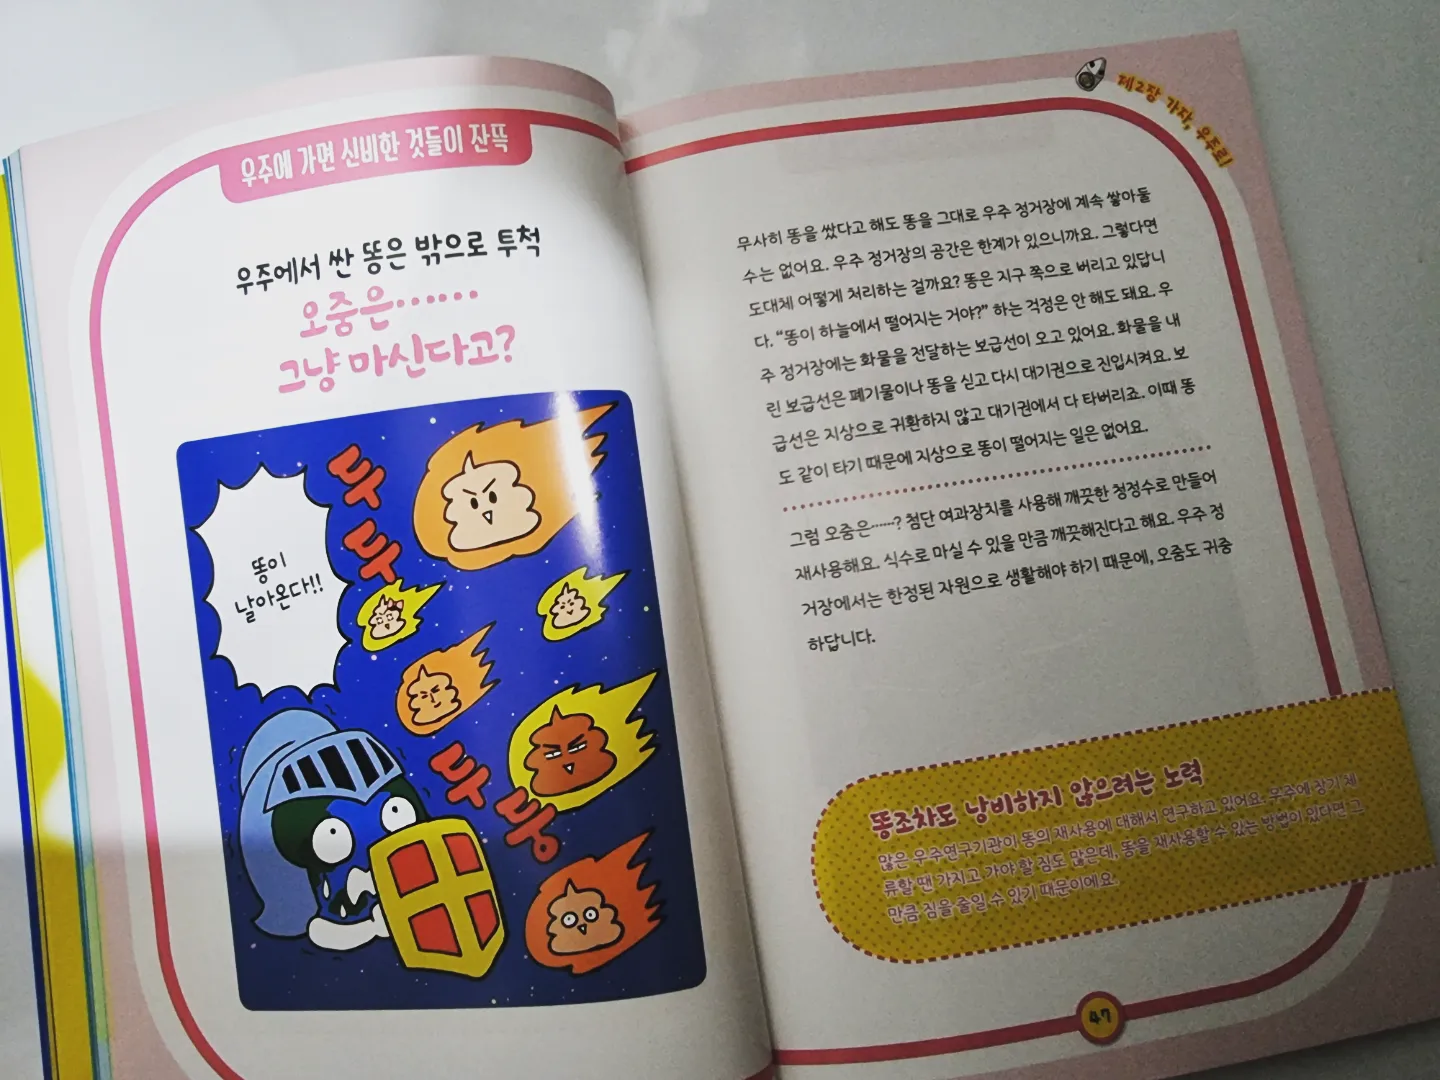 우주에 가면 신비한 것들이 잔뜩
우주에서 싼 똥은 밖으로 투척
오줌은……
그냥 마신다고?
두
두
똥이
날아온다!!
두
둥
제2장 가자, 우주로!
무사히 똥을 쌌다고 해도 똥을 그대로 우주 정거장에 계속 쌓아둘
수는 없어요. 우주 정거장의 공간은 한계가 있으니까요. 그렇다면
도대체 어떻게 처리하는 걸까요? 똥은 지구 쪽으로 버리고 있답니
다. “똥이 하늘에서 떨어지는 거야?” 하는 걱정은 안 해도 돼요. 우
주 정거장에는 화물을 전달하는 보급선이 오고 있어요. 화물을 내
린 보급선은 폐기물이나 똥을 싣고 다시 대기권으로 진입시켜요. 보
급선은 지상으로 귀환하지 않고 대기권에서 다 타버리죠. 이때 똥
도 같이 타기 때문에 지상으로 똥이 떨어지는 일은 없어요.
그럼 오줌은……? 첨단 여과장치를 사용해 깨끗한 청정수로 만들어
재사용해요. 식수로 마실 수 있을 만큼 깨끗해진다고 해요. 우주 정
거장에서는 한정된 자원으로 생활해야 하기 때문에, 오줌도 귀중
하답니다.
똥조차도 낭비하지 않으려는 노력
많은 우주연구기관이 똥의 재사용에 대해서 연구하고 있어요. 우주에 장기 체
류할 땐 가지고 가야 할 짐도 많은데, 똥을 재사용할 수 있는 방법이 있다면 그
만큼 짐을 줄일 수 있기 때문이에요.
47